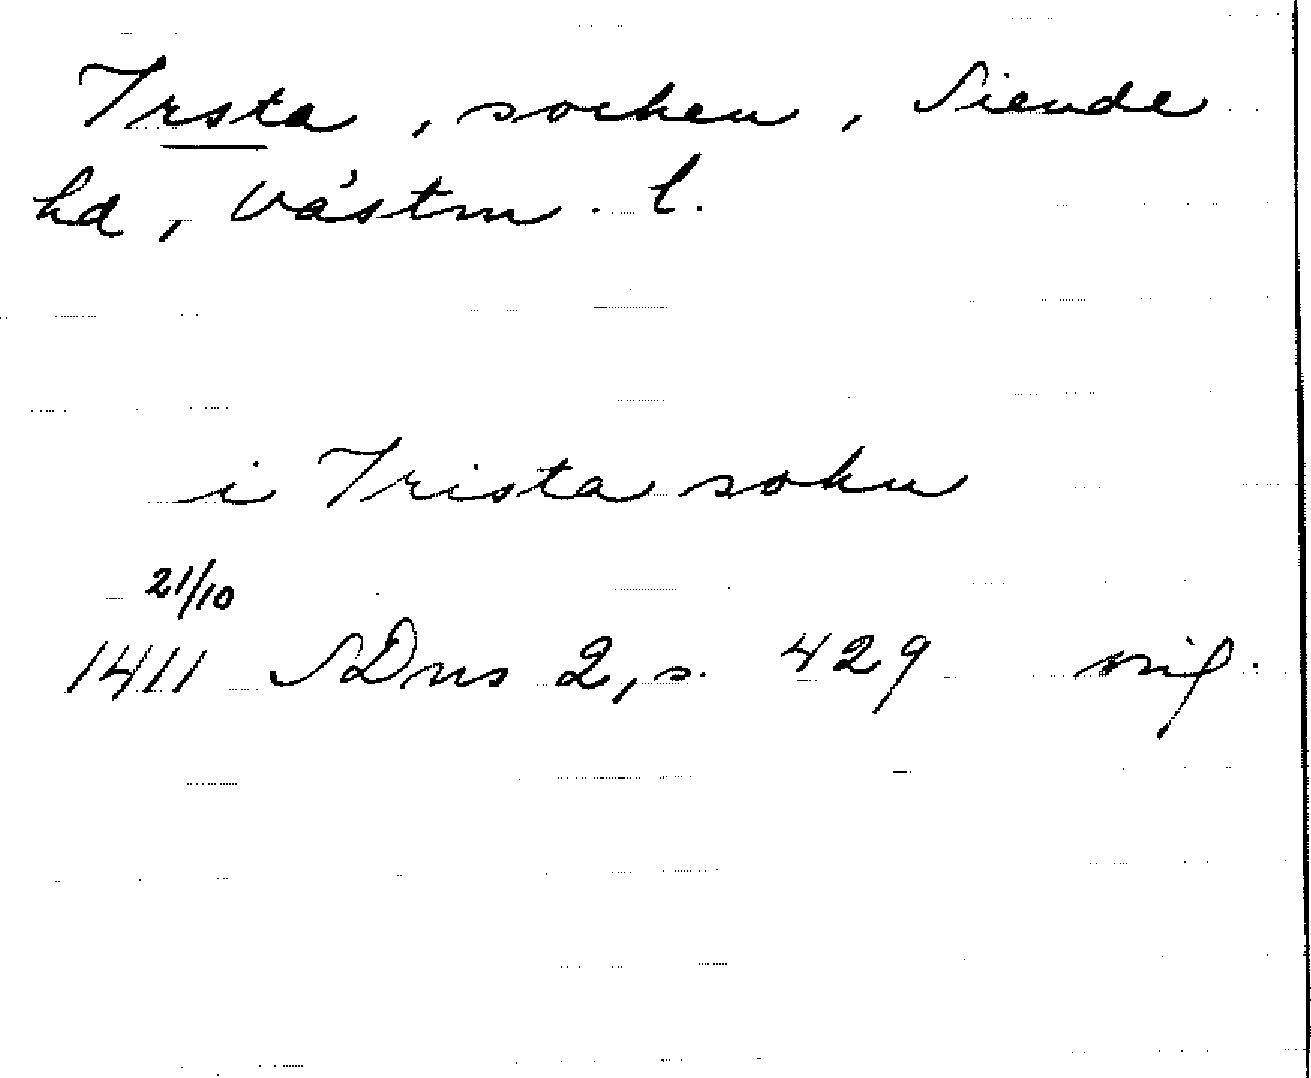 Irsta, socken, Siende
hd, Västm. l.
i Irista sokn
21/10
1411 SDns 2, s. 429 orig.